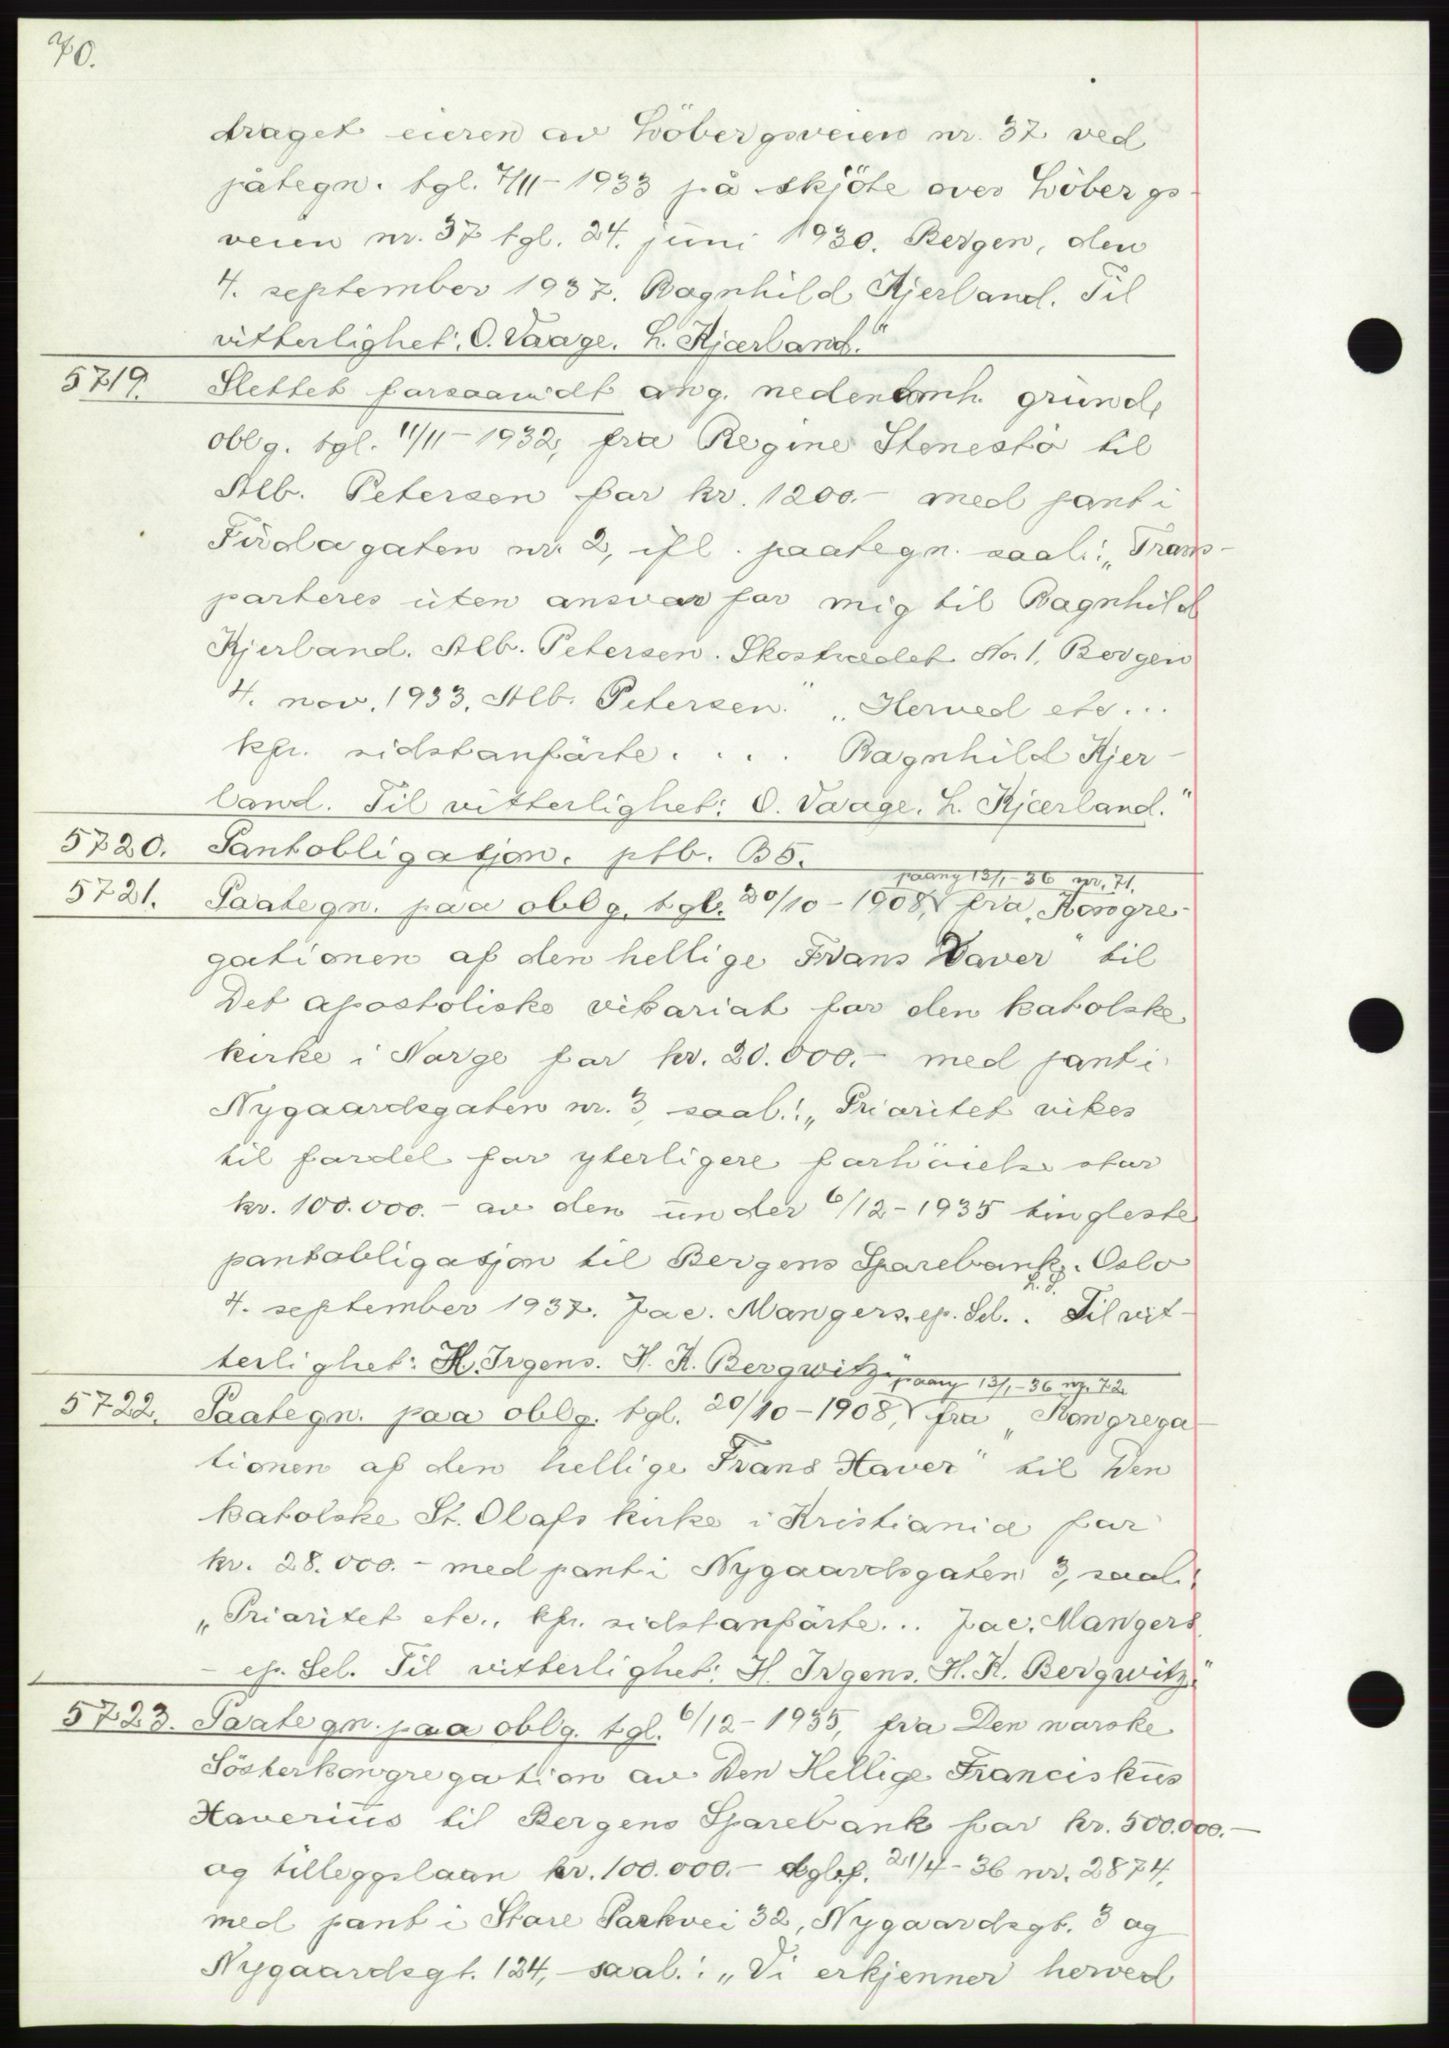 70.
draget eieren av Löbergsveien nr. 37 ved
påtegn. tgl. 7/11-1933 på skjöte over Löbergs-
veien nr. 37 tgl. 24. juni 1930. Bergen, den
4. september 1937. Ragnhild Kjerland. Til
vitterlighet: O. Vaage. L. Kjærland."
5719. Slettet forsaavidt ang. nedenomh. grund,
oblg. tgl. 11/11-1932, fra Regine Stenestö til
Alb. Petersen for kr. 1200.- med pant i
Firdagaten nr. 2, ifl. paategn. saal.: „Trans-
porteres uten ansvar for mig til Ragnhild
Kjerland. Alb. Petersen. Skostrædet No. 1, Bergen
4. nov. 1933. Alb. Petersen." „Herved etc...
kfr. sidstanförte. . . . Ragnhild Kjer-
land. Til vitterlighet: O. Vaage. L. Kjærland."
5720. Pantobligasjon. ptb. B5.
paany 13/1-36 nr. 71.
5721. Paategn. paa oblg. tgl. 20/10-1908, fra „Kongre-
gationen af den hellige Frans Xaver" til
Det apostoliske vikariat for den katolske
kirke i Norge for kr. 20.000.- med pant i
Nygaardsgaten nr. 3, saal.: „Prioritet vikes
til fordel for yterligere forhöielse stor
kr. 100.000.- av den under 6/12-1935 tingleste
pantobligasjon til Bergens Sparebank. Oslo
L. S.
4. september 1937. Jac. Mangers. ep. Sel. . Til vit-
terlighet: H. Irgens. H. K. Bergwitz."
paany 13/1-36 nr. 72.
5722. Paategn. paa oblg. tgl. 20/10-1908, fra „Kongrega-
tionen af den hellige Frans Xaver" til Den
katolske St. Olafs kirke i Kristiania for
kr. 28.000.- med pant i Nygaardsgaten 3, saal.:
„Prioritet etc.. kfr. sidstanförte... Jac. Mangers
- ep. Sel. Til vitterlighet: H. Irgens. H. K. Bergwitz."
5723. Paategn. paa oblg. tgl. 6/12-1935, fra Den norske
Sösterkongregation av Den Hellige Franciskus
Xaverius til Bergens Sparebank for kr. 500.000.-
og tilleggslaan kr. 100.000.- 21/4-36 nr. 2874,
med pant i Store Parkvei 32, Nygaardsgt. 3 og
Nygaardsgt. 124, saal.: „Vi erkjenner herved